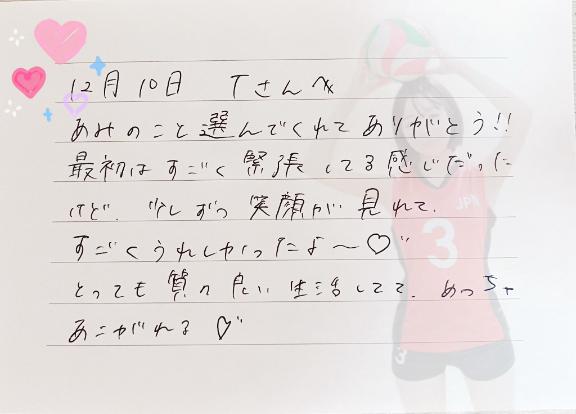 12月10日 Tさんへ
あみのこと選んでくれてありがとう!!
最初はすごく緊張してる感じだった
けど、少しずつ笑顔が見れて、
すごくうれしかったよ〜♡"
とっても質の良い生活してて、めっちゃ
あこがれる♡"
JPN
3
3